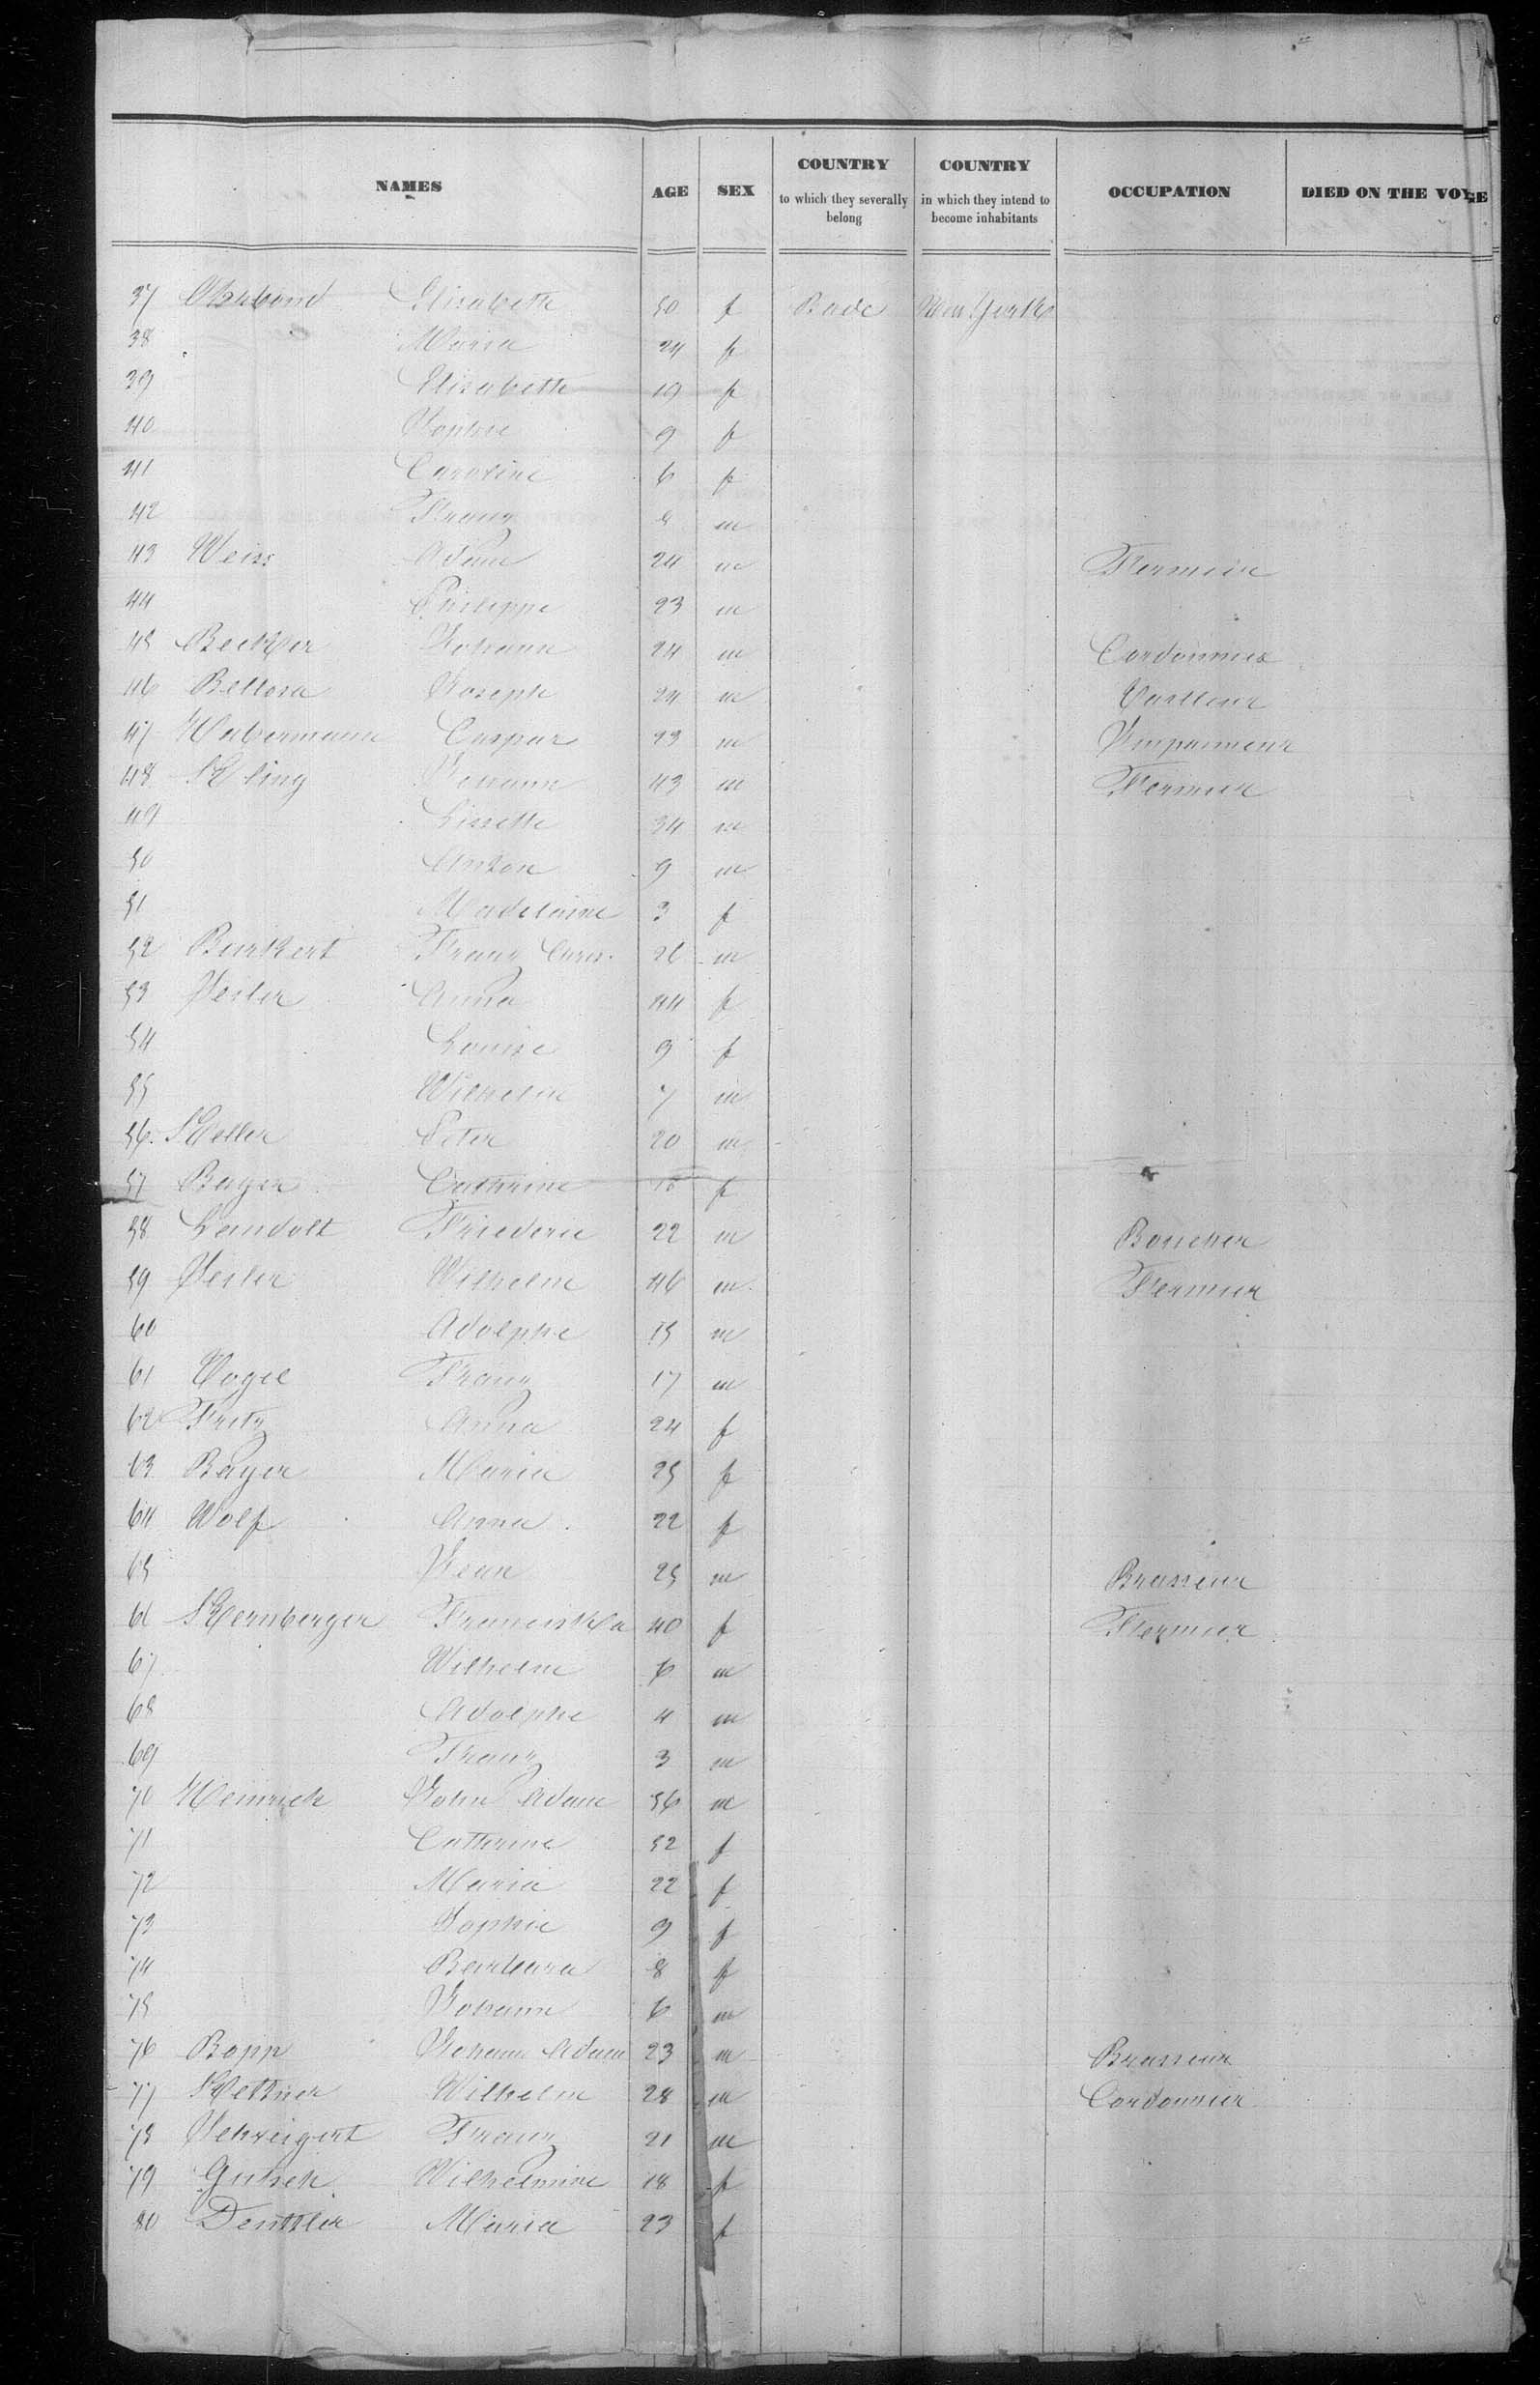 NAMES AGE SEX COUNTRY to which they severally belong COUNTRY in which they intend to become inhabitants OCCUPATION DIED ON THE VOY GE
37 Elisabeth 50 f Bade New Yorck
38 Maria 24 f
39 Elisabeth 19 f
40 Sophie 9 f
41 Caroline 6 f
42 Franz m
43 Weiss Adam 24 m Fermier
44 Philippe 23 m
45 Johann 24 m Cordonnier
46 Bellosa Joseph 24 m Tailleur
47 Habermann Caspar 23 m
48 Kling Johann 43 m Fermier
49 Lisette 34 m
50 Anton 9 m
51 Madelaine 3 f
52 Burkert Franz 26 m
53 Anna 44 f
54 Louise 9 f
55 Wilhelm 7 m
56. Keller Peter 20 m
57 Bayer Catherine f
58 Landolt Friederic 22 m Boucher
59 Wilhelm 46 m Fermier
60 Adolphe 15 m
61 Vogel Franz 17 m
62 Fritz Anna 24 f
63 Bayer Maria 25 f
64 Wolf Anna 22 f
65 Jean 25 m Brasseur
66 Kernberger Franciska 40 f Fermier
67 Wilhelm 6 m
68 Adolphe 4 m
69 Franz 3 m
70 Heinrich John Adam 56 m
71 Catherine 52 f
72 Maria 22 f
73 Sophie 9 f
74 Barbara 8 f
75 Johann 6 m
76 Bopp Johann Adam 23 m Brasseur
77 Wilhelm 28 m Cordonnier
78 Franz 21 m
79 Wilhelmine 18 f
80 Maria 23 f